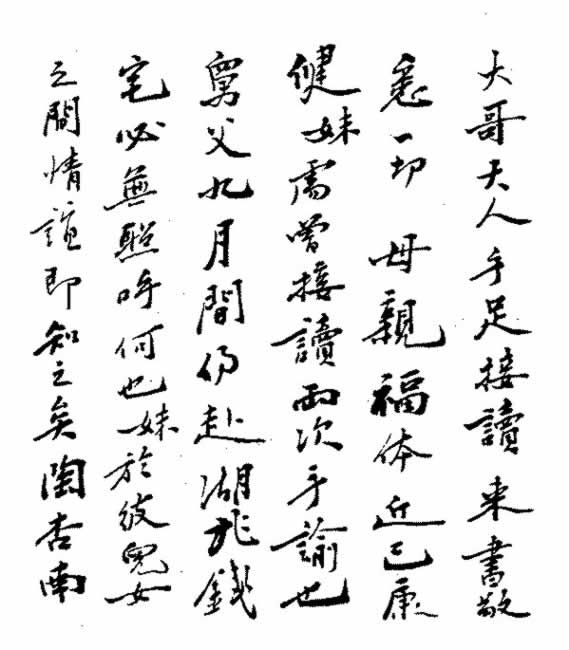 大哥大人手足接讀來書敬
悉一切 母親福体近已康
健妹處曾接讀兩次手諭也
舅父九月間仍赴湖北錢
宅必無照呼何也妹於彼兒女
之間情誼即知之矣陶杏南